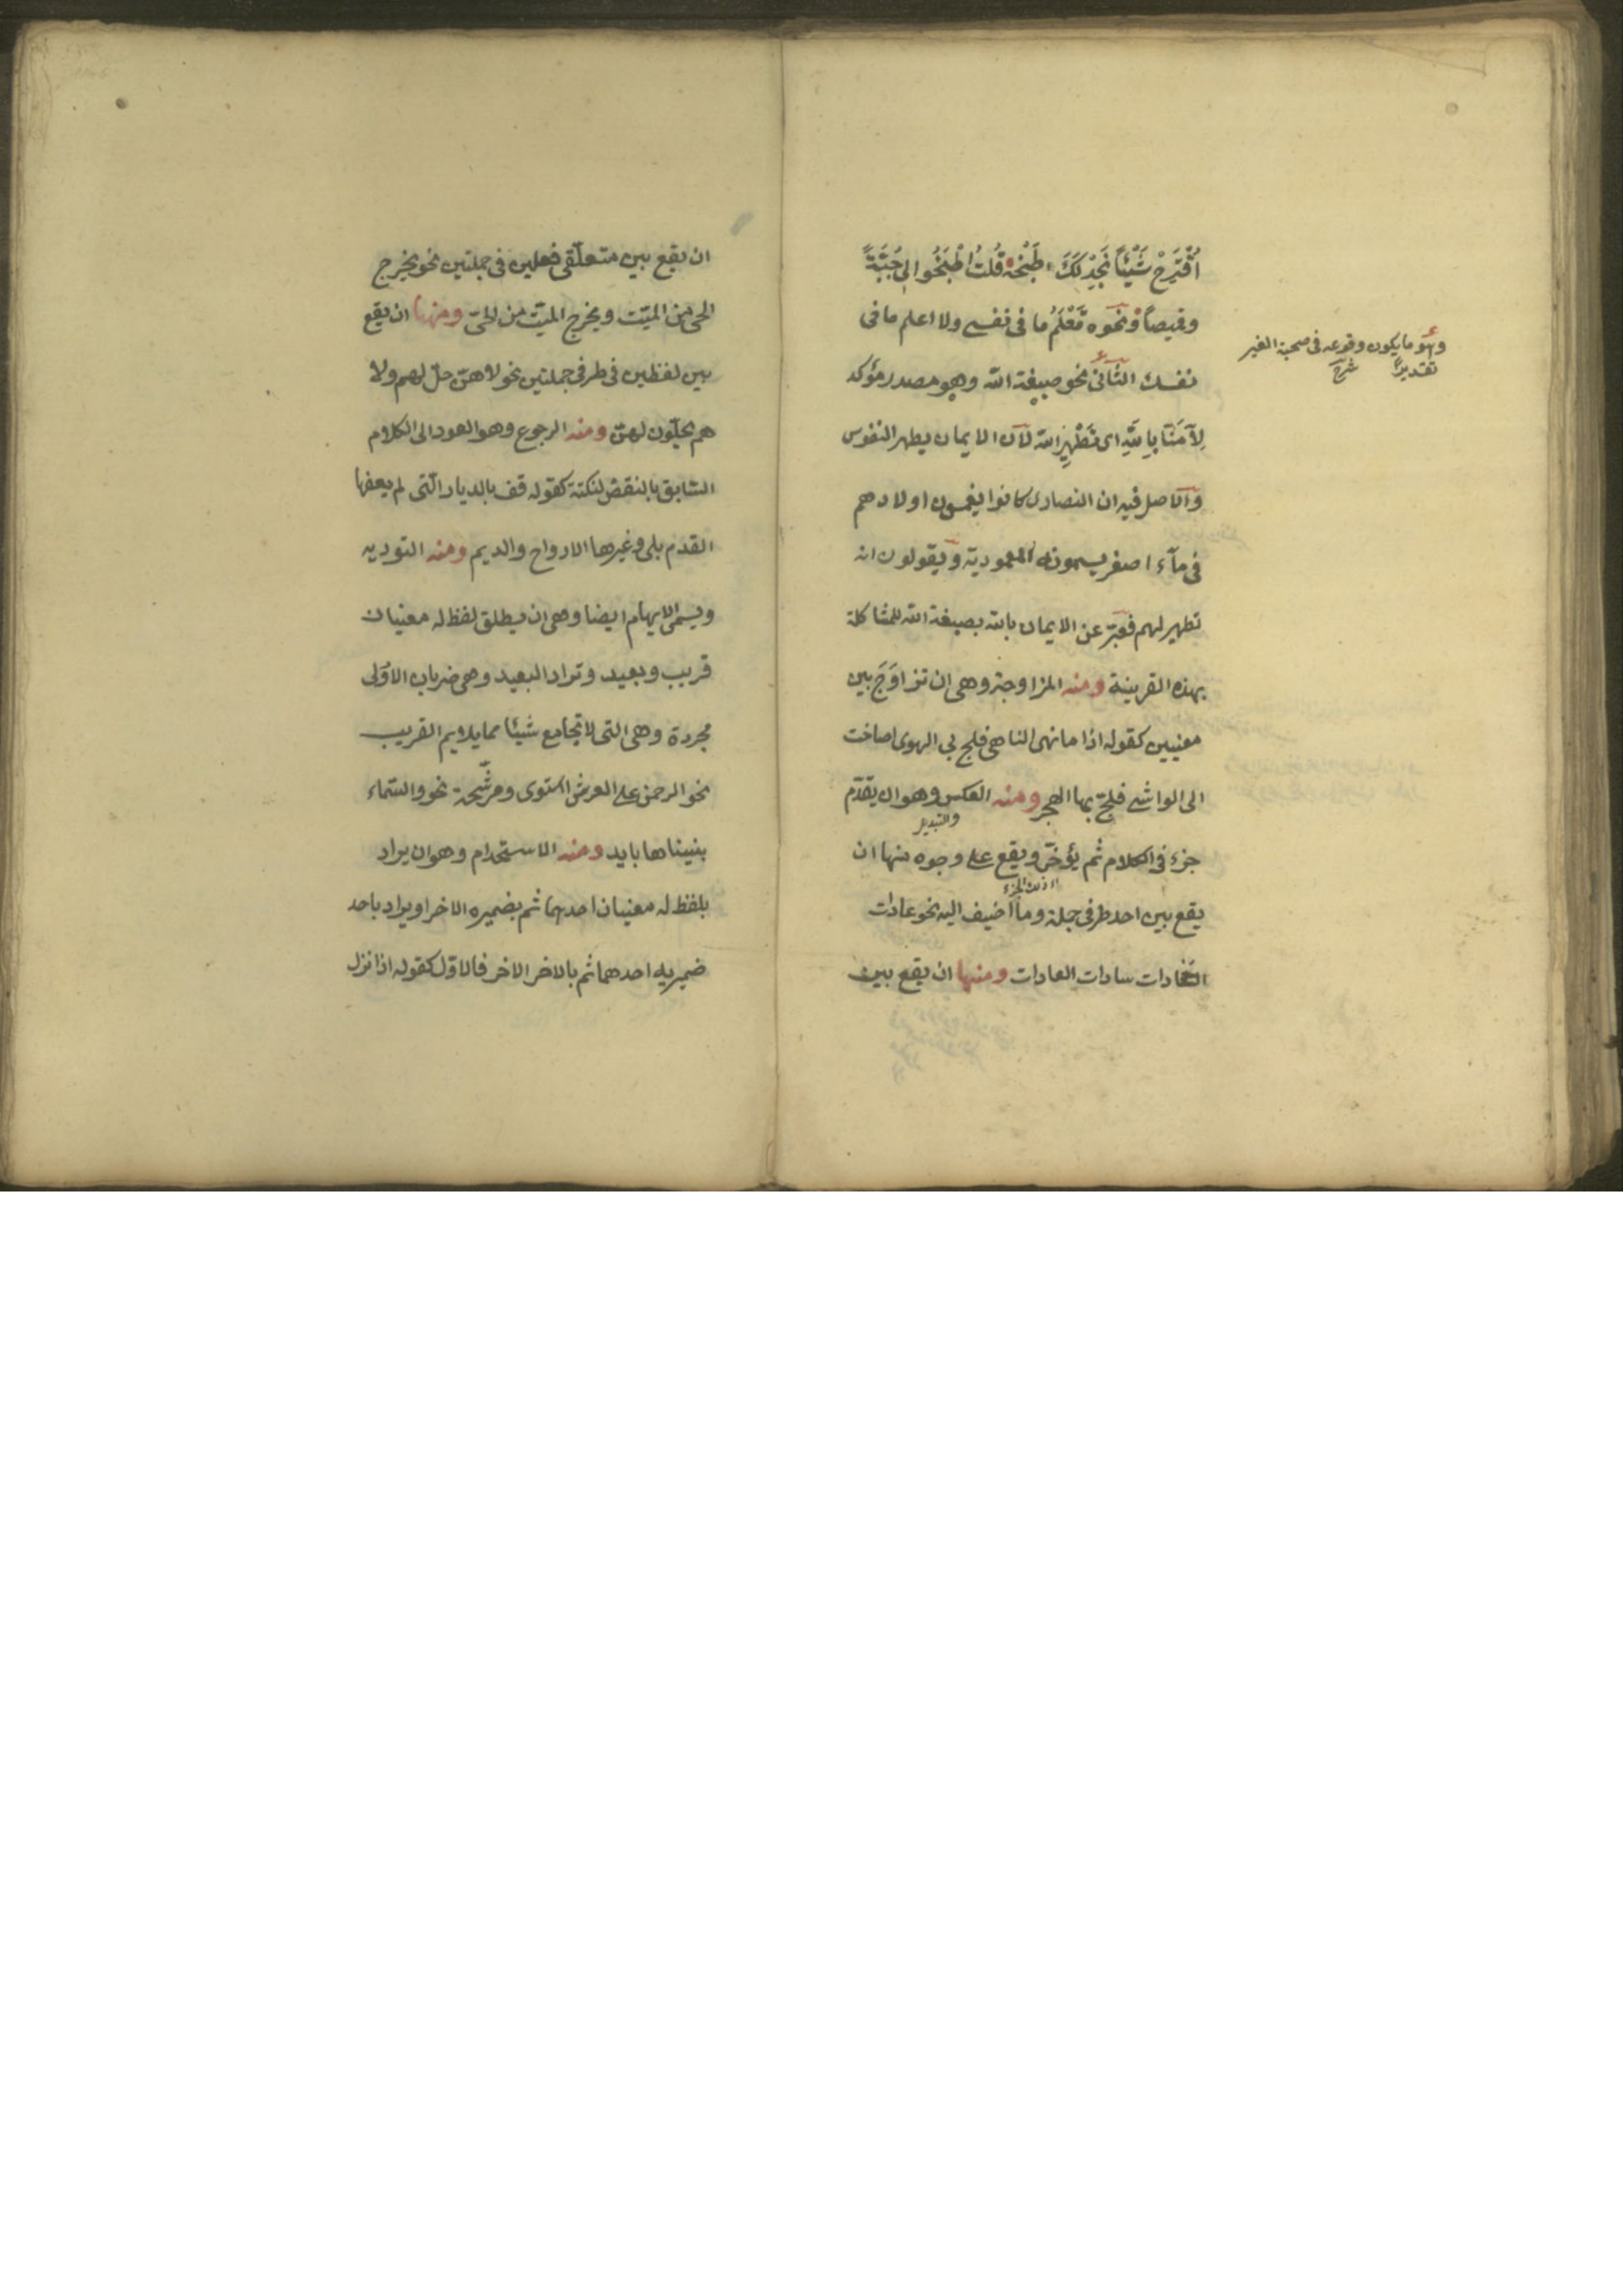 اُقْتَرِحْ شَيْئًا نُجِدْ لَكَ طَبْخَهُ قُلْتُ اطْبَخُوا لِي جُبَّةً
وقميصاً ونحوه تَعْلَمُ ما فى نفسى ولا اعلم ما فى
نفسك الثانى نحو صبغة الله وهو مصدر مؤكد
لِآمَنَّا بِاللهِ اى تَطْهِيرَ الله لان الايمان يطهر النفوس
والاصل فيه ان النصارى كانوا يغمسون اولادهم
فى مآء اصفر يسمونه المعمودية ويقولون انه
تطهير لهم فعبّر عن الايمان بالله بصبغة الله للمشاكلة
بهذه القرينة ومنه المزاوجة وهى ان تزاوَجَ بين
معنيين كقوله اذا ما نهى الناهى فلج بي الهوى اصاخت
الى الواشى فلجّ بها الهجر ومنه العكس وهو ان يقدّم
والتبديل
جزء فى الكلام ثم يؤخّر ويقع على وجوه منها ان
ذلك الجزء
يقع بين احد طرفى جملة وما اضيف اليه نحو عادات
السادات سادات العادات ومنها ان يقع بين
وهو ما يكون وقوعه فى صحبة الغير
تقديراً شرح
ان يقع بين متعلّقى فعلين فى جملتين نحو يخرج
الحى من الميّت ويخرج الميّت من الحىّ ومنها ان يقع
بين لفظين فى طرفى جملتين نحو لا هنّ حلّ لهم ولا
هم يحلّون لهنّ ومنه الرجوع وهو العود الى الكلام
السّابق بالنقض لنكتة كقوله قف بالديار الّتى لم يعفها
القدم بلى وغيرها الارواح والديم ومنه التوريه
ويسمى الايهام ايضا وهى ان يطلق لفظ له معنيان
قريب وبعيد وتراد البعيد وهى ضربان الاوّلى
مجردة وهى التى لا تجامع شيئا مما يلايم القريب
نحو الرحمن على العرش استوى ومرشّحة نحو والسّماء
بنيناها بايد ومنه الاستخدام وهو ان يراد
بلفظ له معنيان احدهما ثم بضميره الاخر او يراد باحد
ضميريه احدهما ثم بالاخر الاخر فالاوّل كقوله اذا نزل